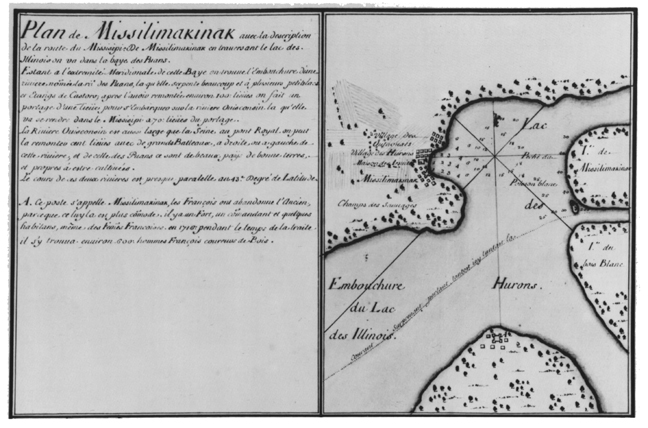 Plan de Missilimakinak avec la description
de la route du Missisipi. De Missilimakinak en traversant le lac des
Illinois on va dans la baye des Puans.
Estant a l'extremité Meridionale de cette Baye on trouve l'Embouchure d'une
riviere, nommée la rivre des Puans, la quelle serpente beaucoup et a plusieurs petits lacs
et Etangs de Castors, apres l'avoir remontée environ 100 lieües on fait un
portage d'une lieüe pour s'Embarquer sur la riviere Ouisconsin la quelle
va se rendre dans le Missisipi a 70 lieües du portage.
La Riviere Ouisconsin est aussi large que la Seine, au pont Royal, on peut
la remonter cent lieües avec de grands Batteaux, a droite, ou a gauche de
cette riviere, et de celle des Puans ce sont de beaux pays de bonne terres,
et propres a estre cultivées.
Le cours de ces deux rivieres est presque paralelle au 42e Degré de Latitude.
A. Ce poste s'appelle Missilimakinak, les François ont abandonné l'Ancien,
parce que celuy la en plus comode, il y a un Fort, un comandant et quelques
habitans, même, des Femes Francoises, en 1716 pendant le temps de la traite
il s'y trouva environ 600 hommes François coureurs de Bois.
Village des
Village des Hurons
Missilimakinak
Champs des Sauvages
Lac
des
Hurons.
I. de
Missilimakinak
I. du
bois Blanc.
Embouchure
du Lac
des Illinois.